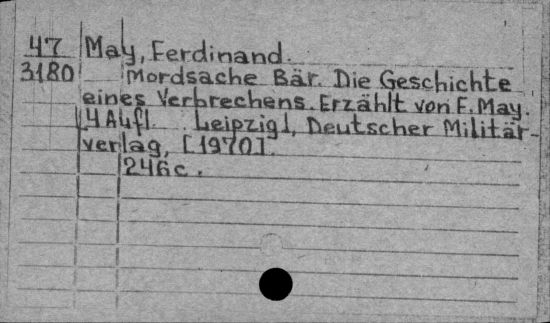 47 May, Ferdinand.
3180 Mordsache Bär. Die Geschichte
eines Verbrechens. Erzählt von F. May.
4 Aufl. Leipzig], Deutscher Militär-
verlag, [1970].
246c.